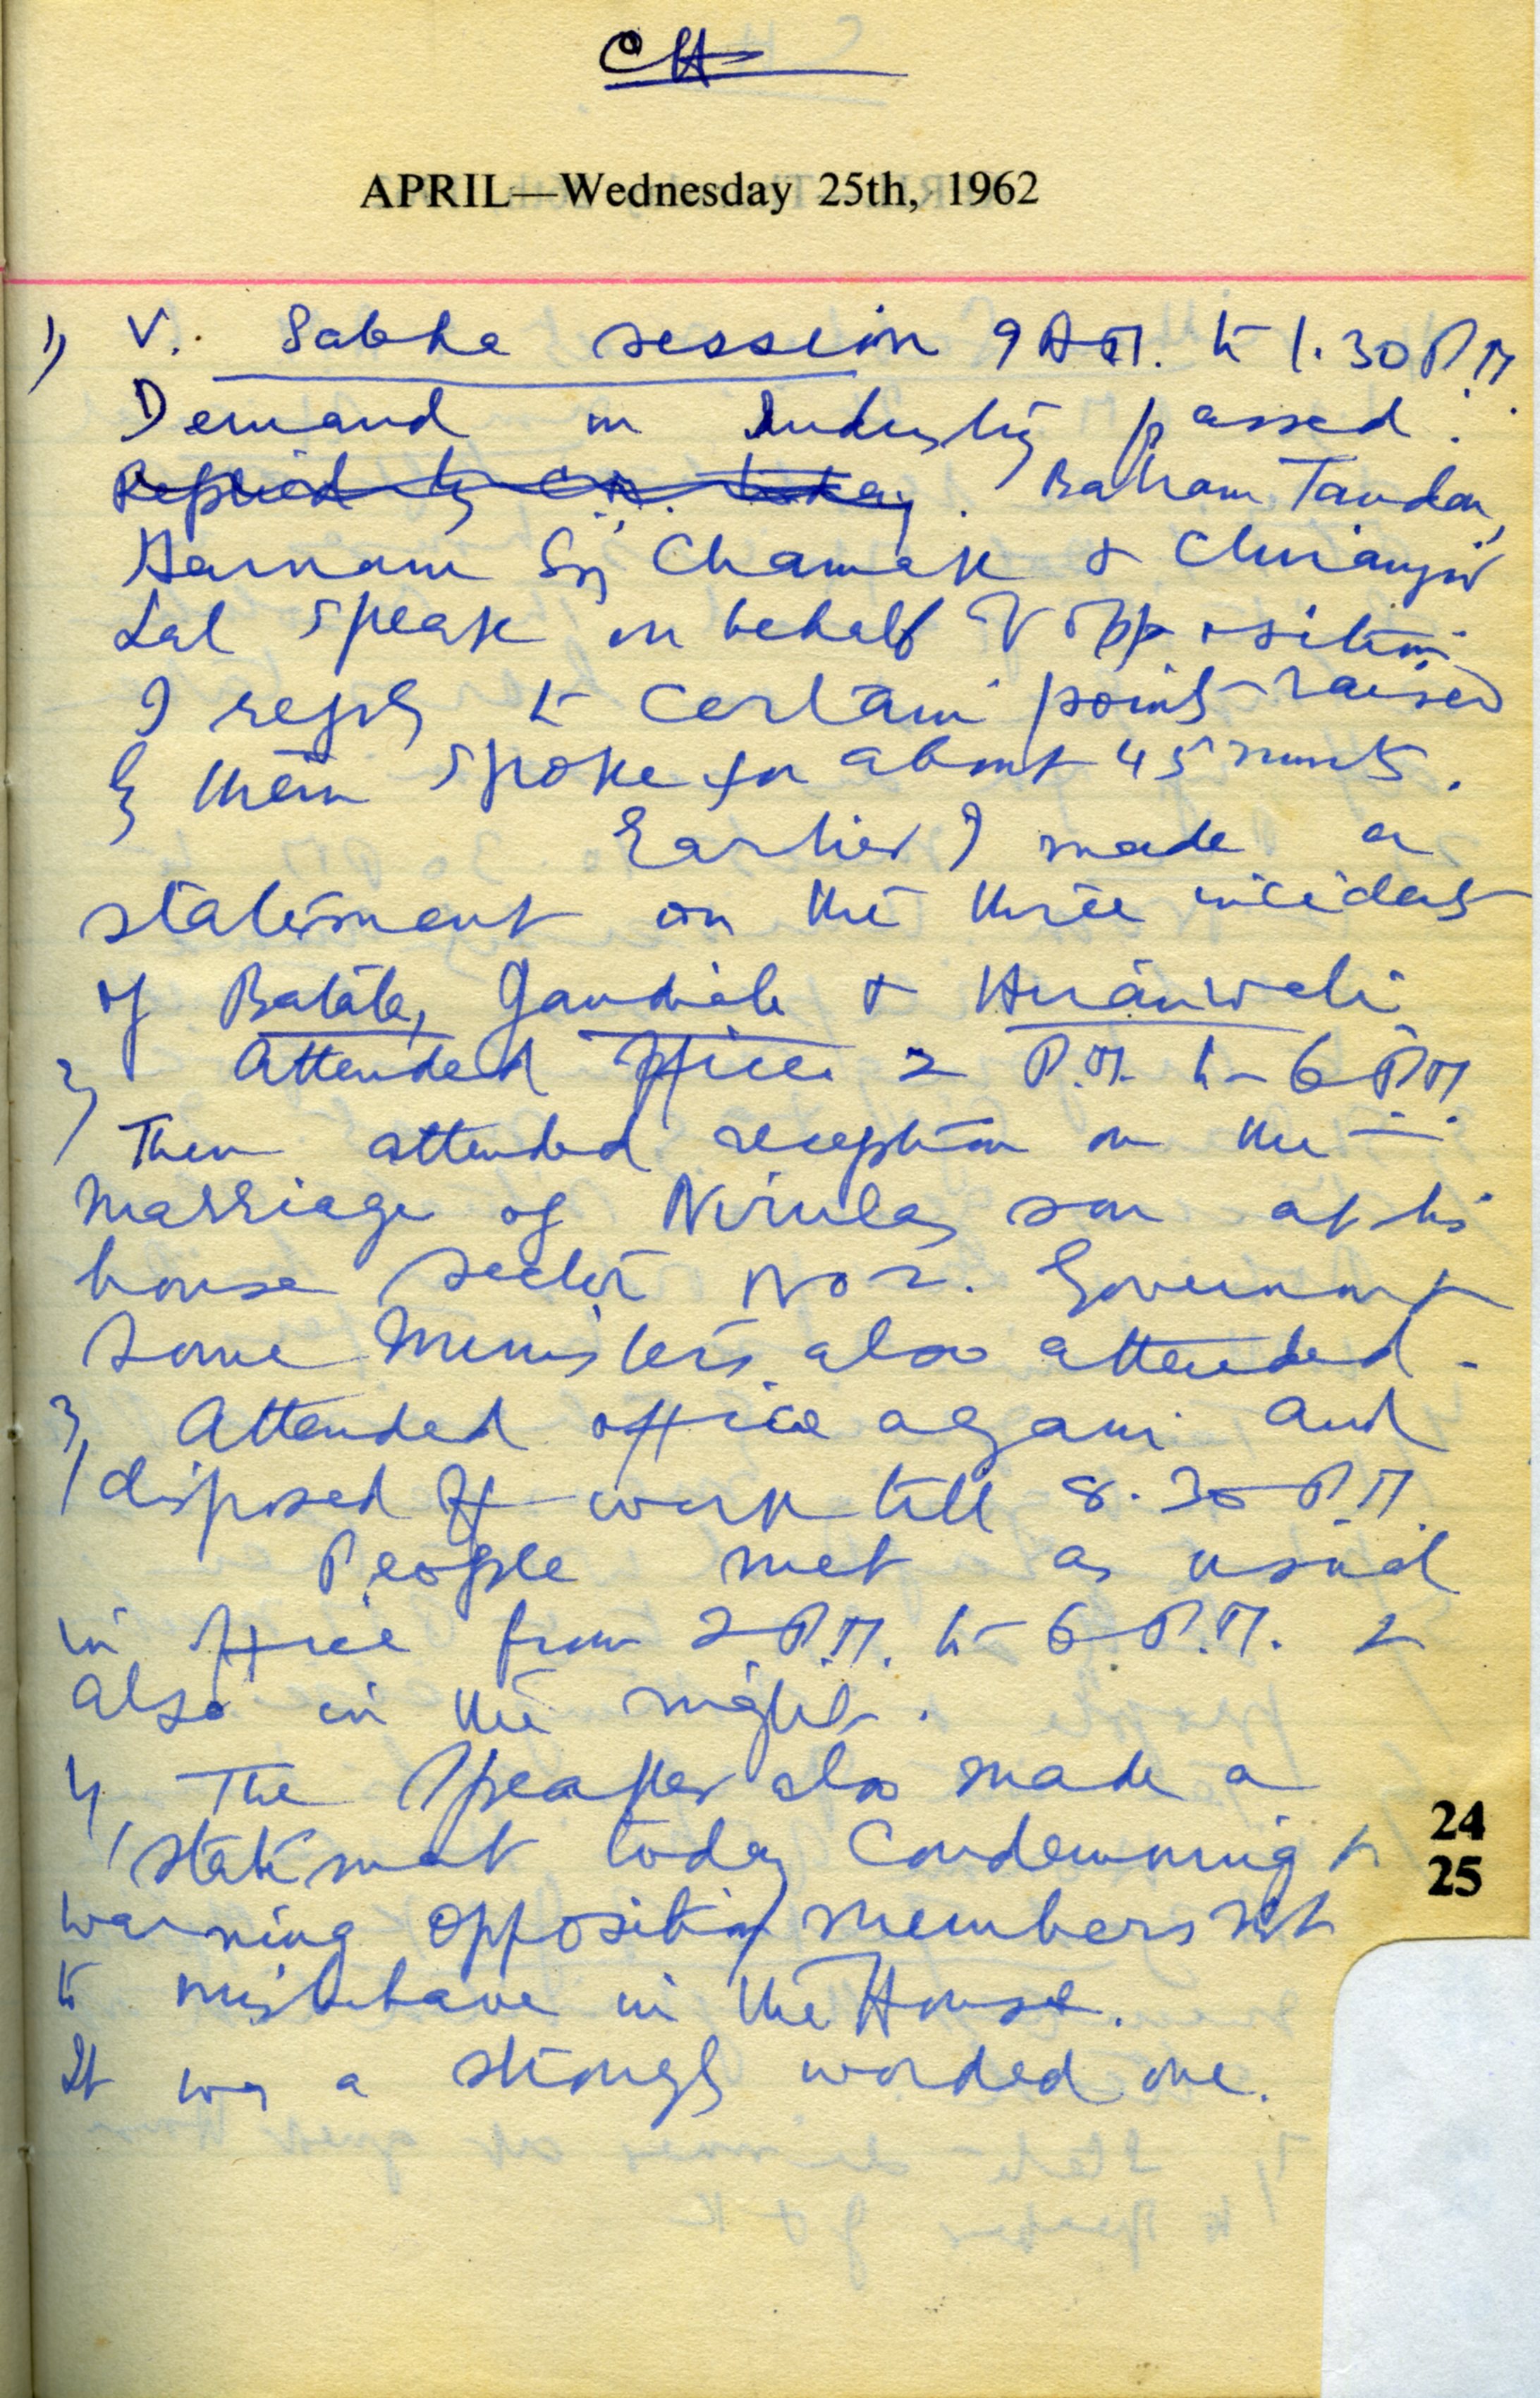 CH
APRIL—Wednesday 25th, 1962
1) V. Sabha session 9 A.M. to 1.30 P.M.
Demand on Industry passed.
Replied by C.M. today. Balram Tandon,
Harnam Sg Chamak & Chiranji
Lal speak on behalf of opposition
I reply to certain points raised
by them spoke for about 45 minuts.
Earlier I made a
statement on the three incidents
of Batala, Jandiala &
2) Attended office 2 P.M. to 6 P.M.
Then attended reception on the
marriage of Nirulas son at his
house sector No 2. Governor
some Ministers also attended.
3) Attended office again and
disposed of work till 8.30 P.M.
People met as usual
in office from 2 P.M. to 6 P.M. &
also in the night.
4) The Speaker also made a
statement today condemning &
warning opposition members not
to misbehave in the House.
It was a strongly worded one.
24
25